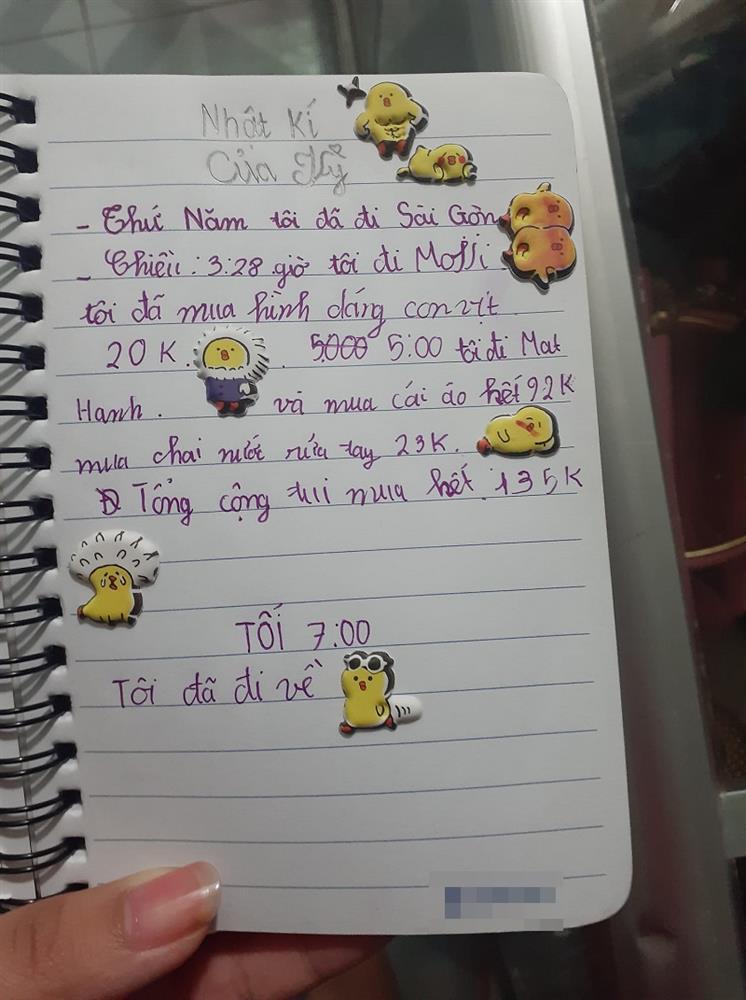 Nhật Kí
Của Hỷ
- Thứ Năm tôi đã đi Sài Gòn
- Chiều: 3:28 giờ tôi đi Moffi
tôi đã mua hình dáng con vịt
20K. . 5000 5:00 tôi đi Mat
Hanh. và mua cái áo hết 92K
mua chai nước rửa tay 23K.
Tổng cộng tui mua hết 135K
TỐI 7:00
Tôi đã đi về